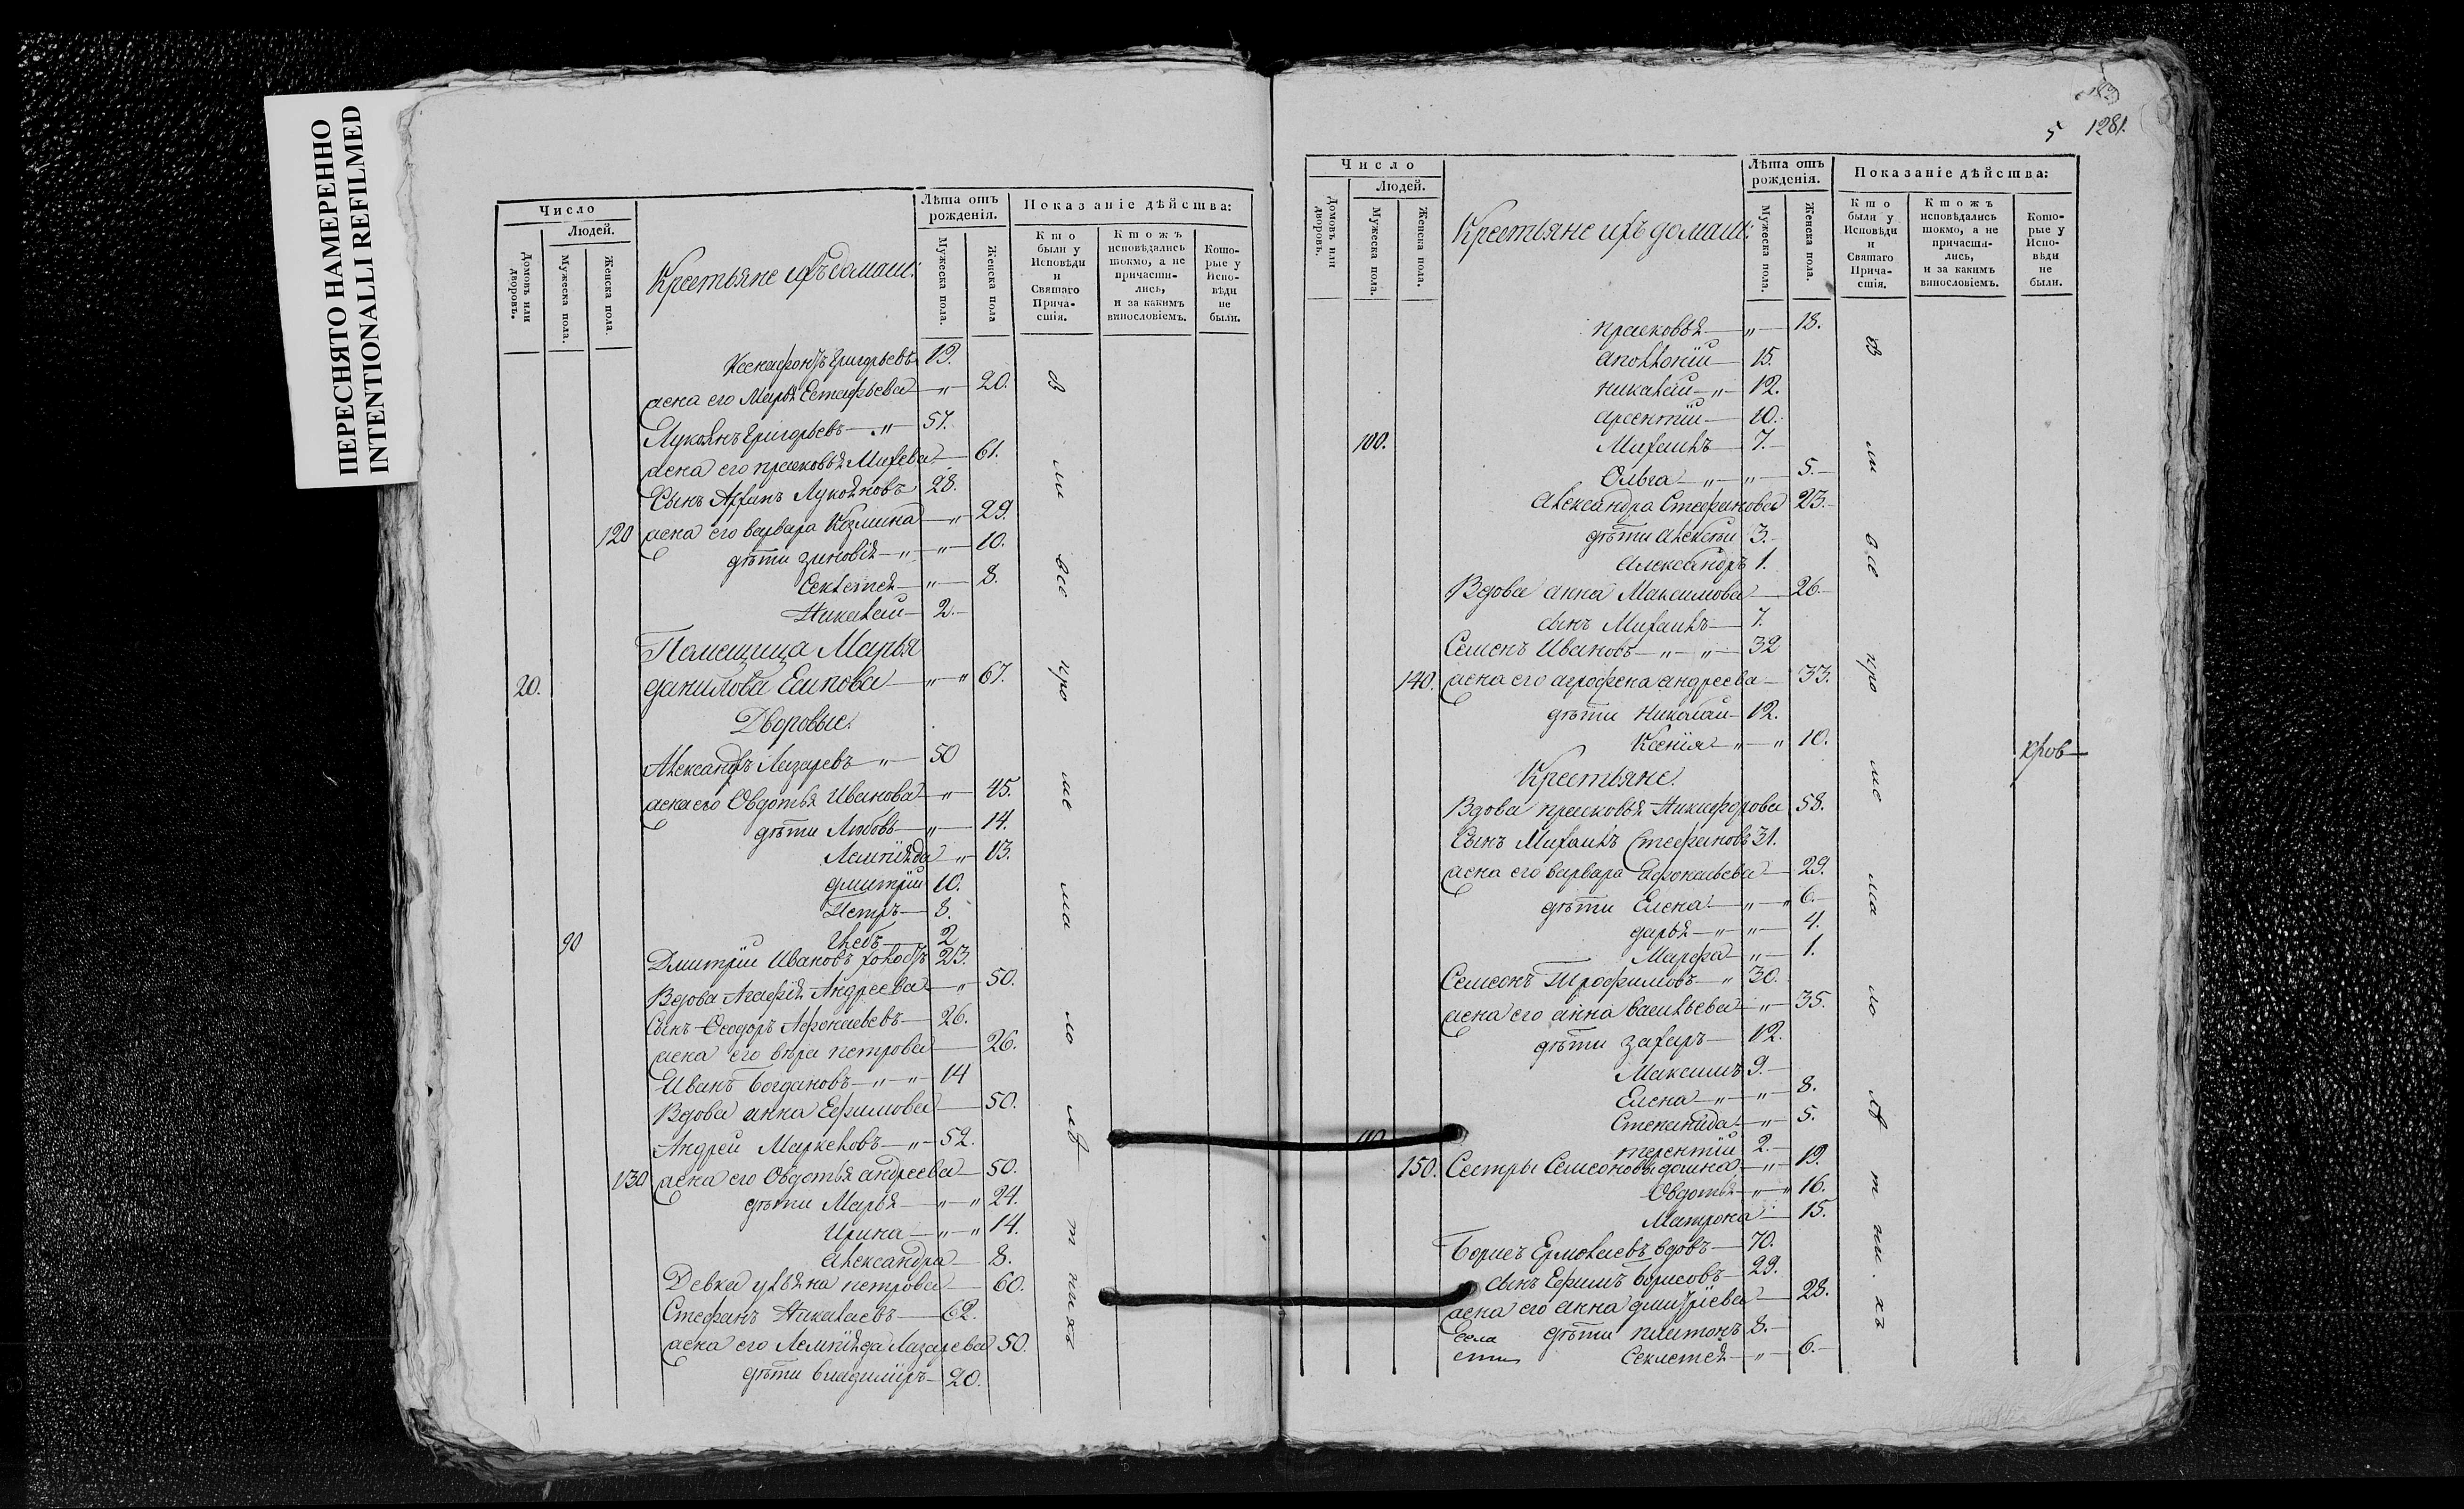 ПЕРЕСНЯТО НАМЕРЕННО
INTENTIONALLI REFILMED
Число
Людей.
Домовъ или дворовъ.
Мужеска пола.
Женска пола.
Крестьяне ихъ домаш:
Лѣта отъ рожденія.
Мужеска пола.
Женска пола
Показаніе дѣйства:
Кто были у Исповѣди и Святаго Причастія.
Ктожъ исповѣдались токмо, а не причастились, и за какимъ винословіемъ.
Которые у Исповѣди не были.
Ксенафонтъ Григорьевъ 19.
жена его Марья Естафьева — " — 20.
Лукоянъ Григорьевъ — " — 57.
жена его прасковья Михеева — 61.
Сынъ Лукояновъ 28.
120 жена его варвара Козмина — " — 29.
дѣти зиновія — " — " — 10.
Секлетея — " — 8.
Николай — 2. —
Помещица Марья
20. данилова Есипова — " " 67.
Дворовые.
Александръ Лазаревъ — " — 50
жена его Овдотья Иванова — " — 45.
дѣти Любовь — " — 14.
Лампіяда " — 13.
дмитрій 10.
Петръ — 8.
90 Глебъ — 2
Дмитрій Ивановъ холостъ 23.
Вдова Агафія Андреева — " — 50.
Сынъ Ѳеодоръ Афонасьевъ — 26.
жена его вѣра петрова — 26.
Иванъ Богдановъ — " — " — 14
Вдова анна Ефимова — 50.
Андрей Маркеловъ — " — 52.
130 жена его Овдотья андреева — 50.
дѣти Марья — " — " 24.
Ирина — " — " 14.
Александра — 8.
Девка ульяна петрова — 60.
Стефанъ Николаевъ — 62.
жена его Лампіяда Лазарева 50.
дѣти владимиръ — 20.
в ли все кро ме ма ло лѣ т нихъ
5 1281.
Число
Людей.
Домовъ или дворовъ.
Мужеска пола.
Женска пола.
Крестьяне ихъ домаш:
Лѣта отъ рожденія.
Мужеска пола.
Женска пола.
Показаніе дѣйства:
Кто были у Исповѣди и Святаго Причастія.
Ктожъ исповѣдались токмо, а не причастились, и за какимъ винословіемъ.
Которые у Исповѣди не были.
прасковья — " — 18.
аполлоній — 15.
николай — " — 12.
арсентій — 10.
100. Михаилъ — 7. —
Ольга — " — " — 5. —
Александра Стефанова 23. —
дѣти Алексѣй 3. —
Александръ 1.
Вдова анна Максимова — 26. —
сынъ Михаилъ — 7.
Семенъ Ивановъ — " — " — 32
140. жена его агрофена андреева — 33.
дѣти Николай — 12.
Ксенія — " — " 10.
Крестьяне.
Вдова прасковья Никифорова 58.
Сынъ Михаилъ Стефановъ 31.
жена его варвара Афонасьева — 29.
дѣти Елена — " — " 6. —
дарья — " — " — 4.
Марфа — " — 1.
Семеонъ Трофимовъ — " 30.
жена его анна васильева — " — 35.
дѣти захаръ — 12.
Максимъ 9. —
Елена — " — " — 8.
Степанида — " — 5.
110 терентій 2. —
150. Сестры Семеоновы домна — " — 19.
Овдотья — " — " 16.
Матрона — 15.
Борисъ Ермолаевъ вдовъ — 70.
сынъ Ефимъ Борисовъ — 29.
жена его анна дмитріева — 28.
дѣти платонъ 8. —
Секлетея — " — 6. —
в ли все кро ме ма ло лѣ т ни хъ